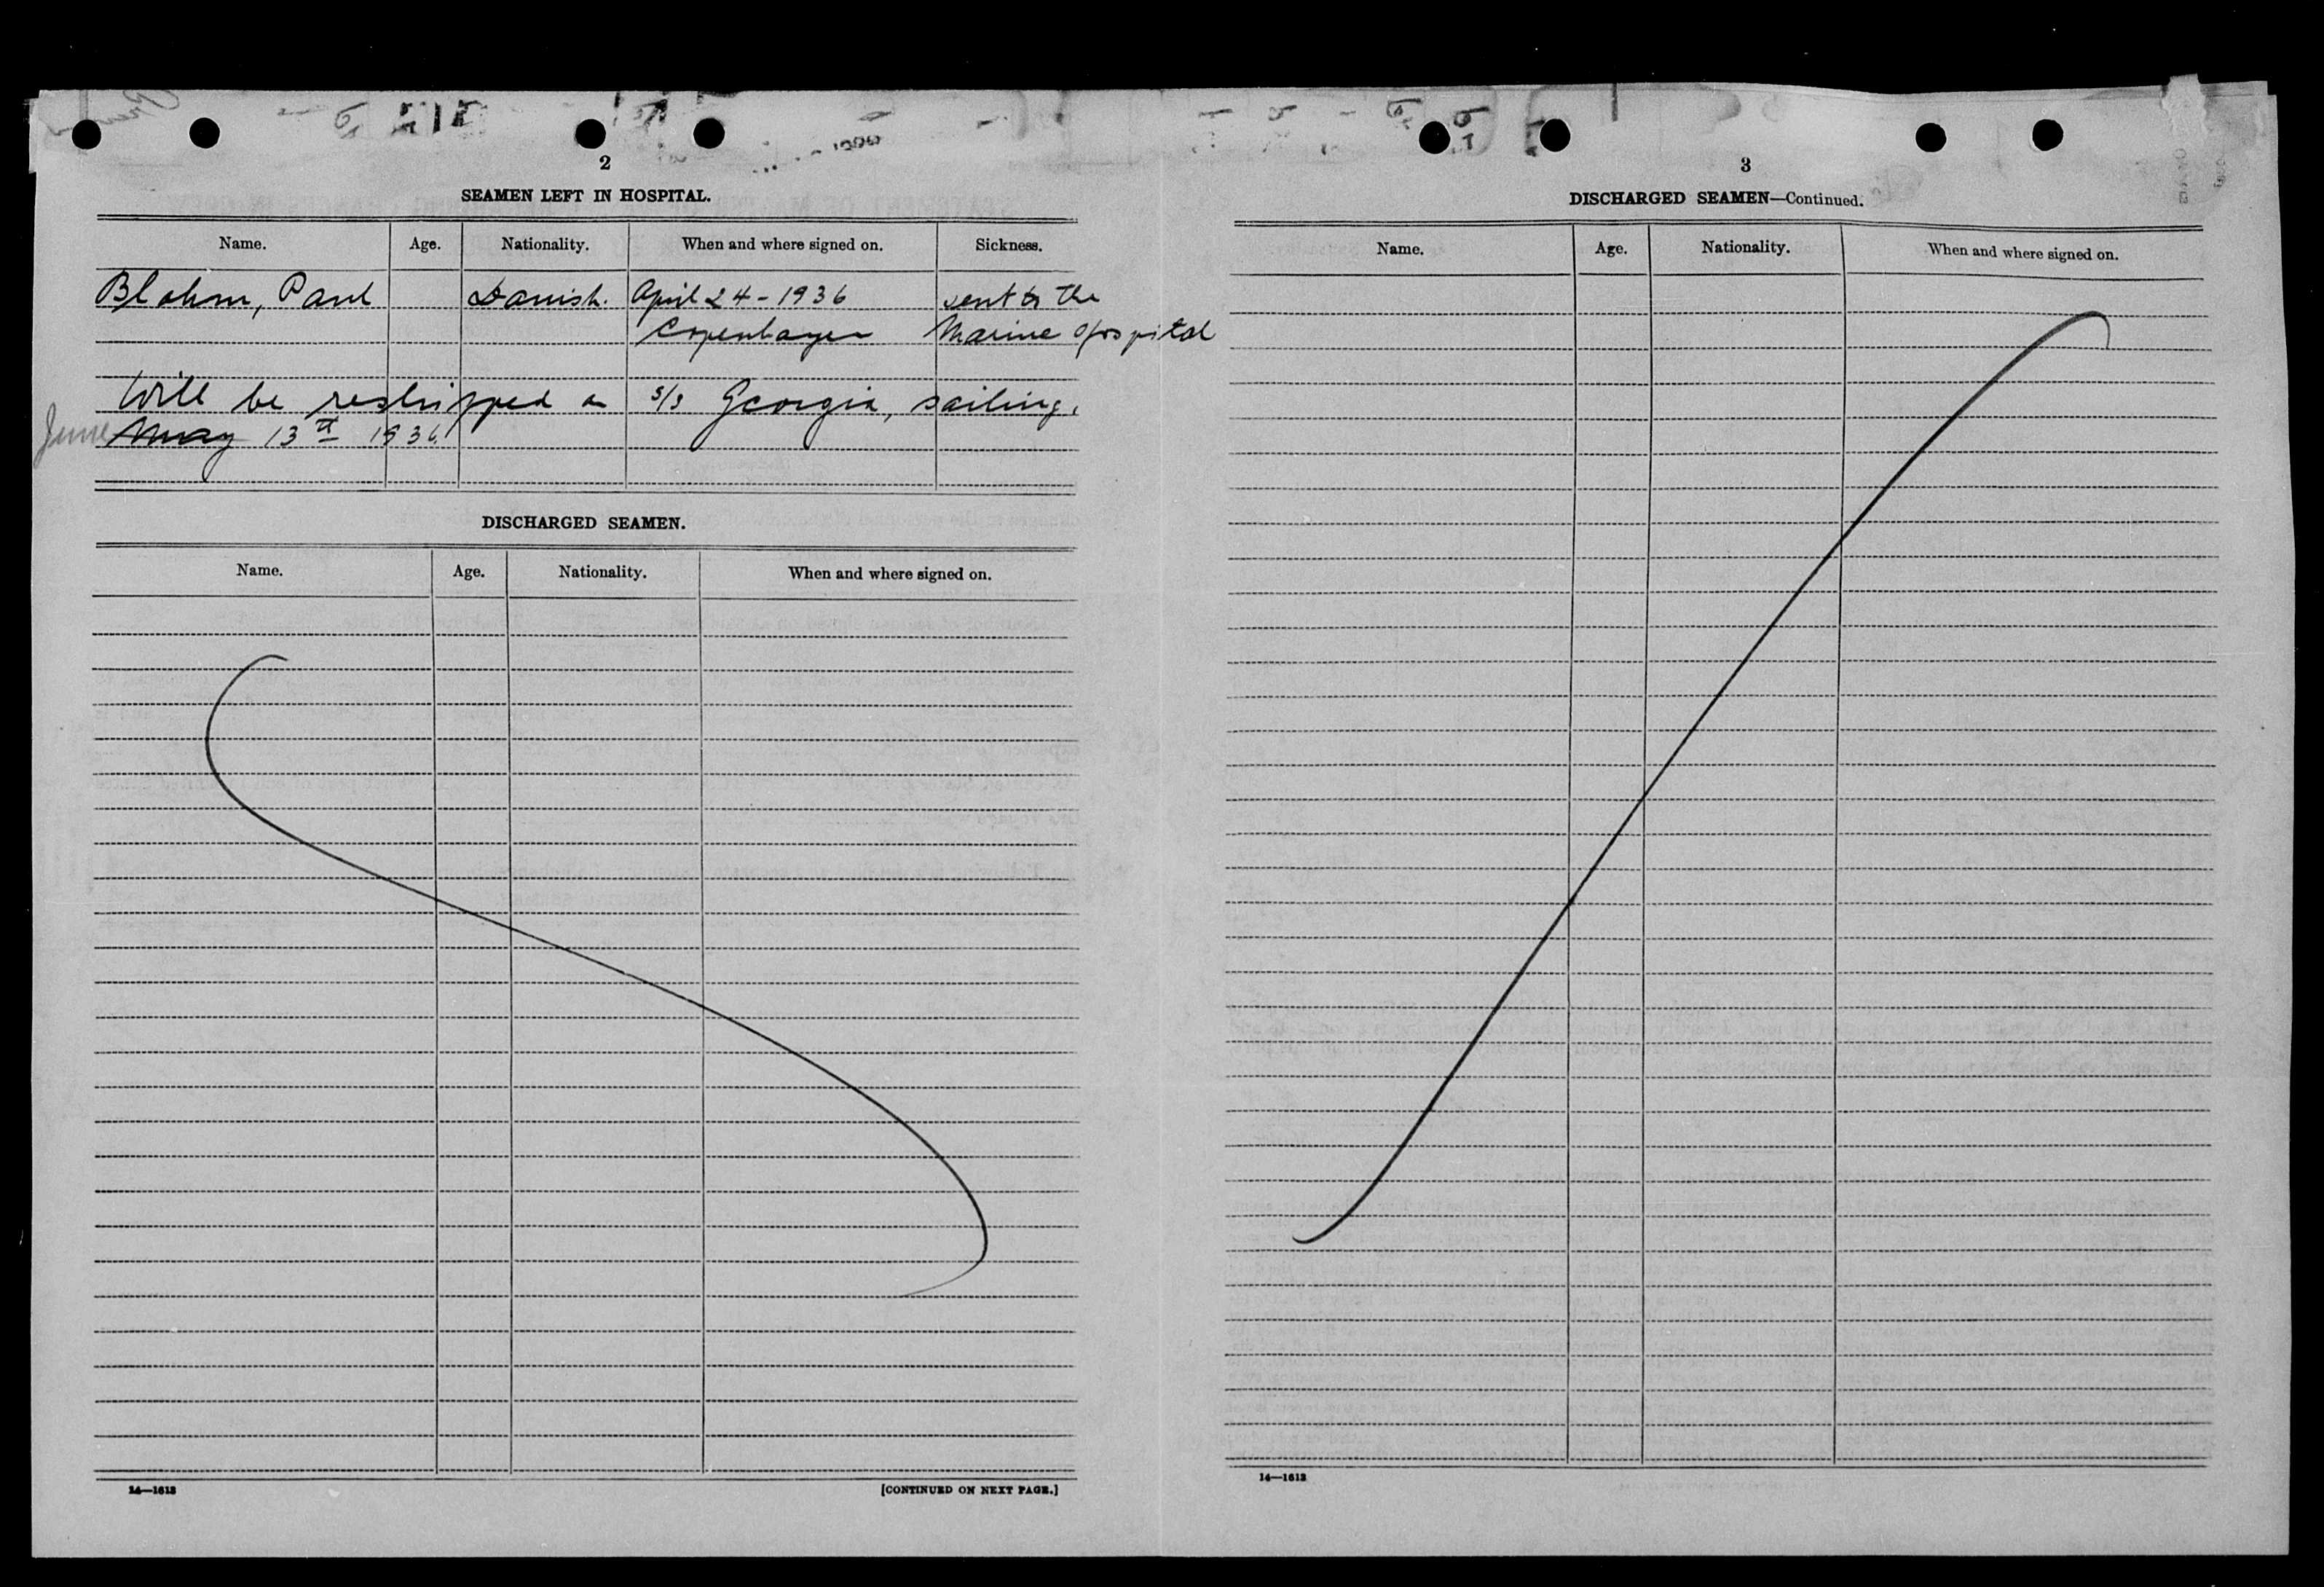 2
SEAMEN LEFT IN HOSPITAL.
Name. Age. Nationality. When and where signed on. Sickness.
Blohm, Paul Danish. April 24 - 1936 sent to the
Copenhagen Marine Hospital
Will be reshipped on s/s Georgia, sailing.
June May 13th 1936.
DISCHARGED SEAMEN.
Name. Age. Nationality. When and where signed on.
14—1613
[CONTINUED ON NEXT PAGE.]
3
DISCHARGED SEAMEN—Continued.
Name. Age. Nationality. When and where signed on.
14—1613